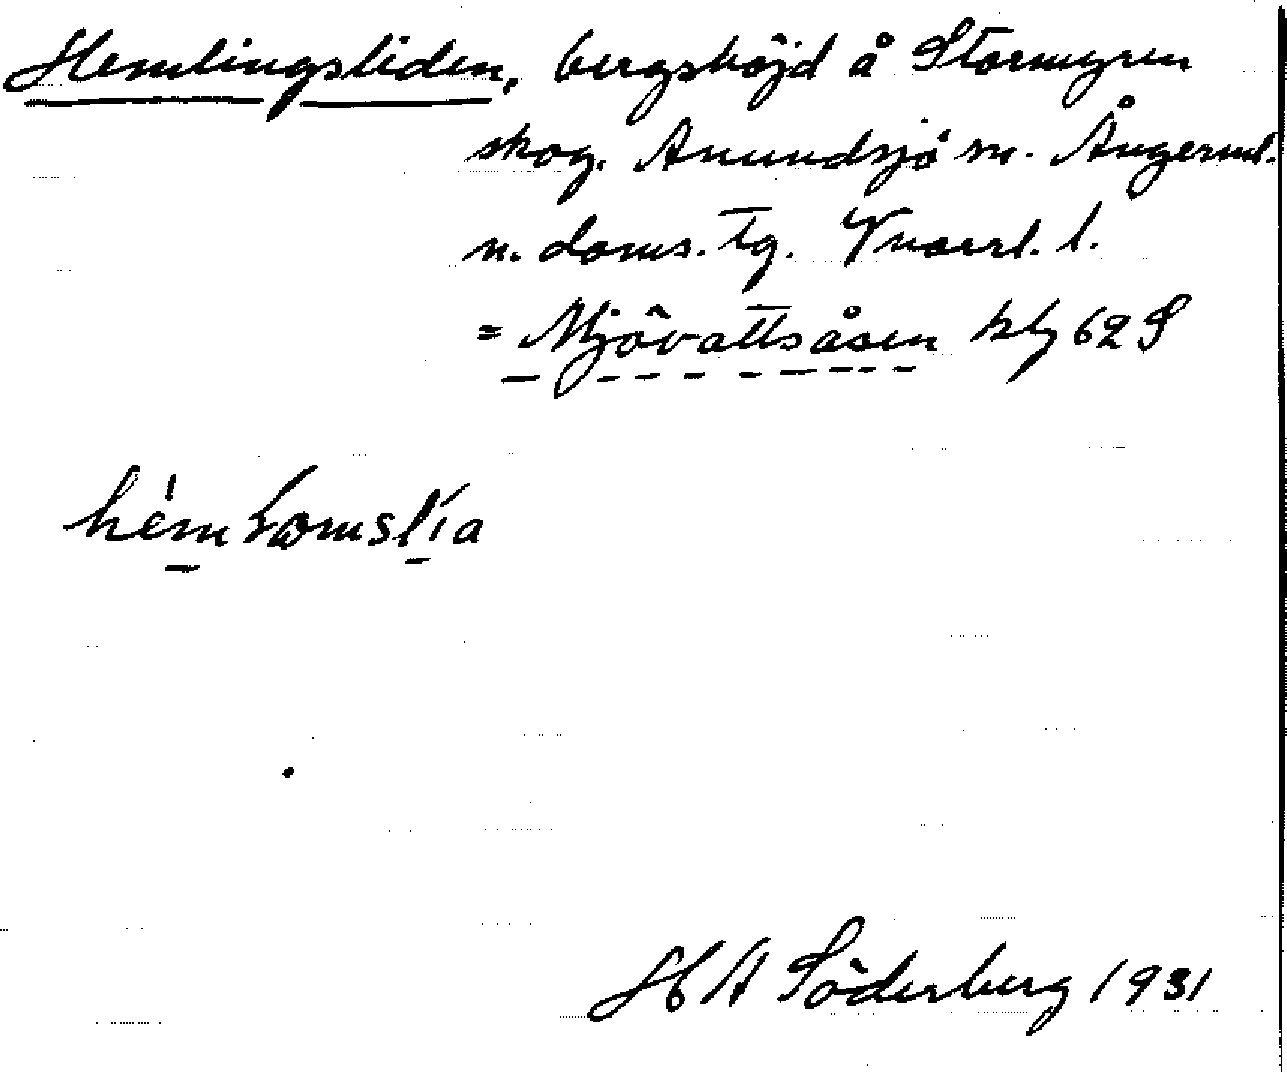 Hemlingsliden, bergshöjd å Stormyren
skog. Anundsjö sn. Ångerml.
n. doms. tg. Vnorrl. l.
= Mjövattsåsen kbl 62 S
H A Söderberg 1931